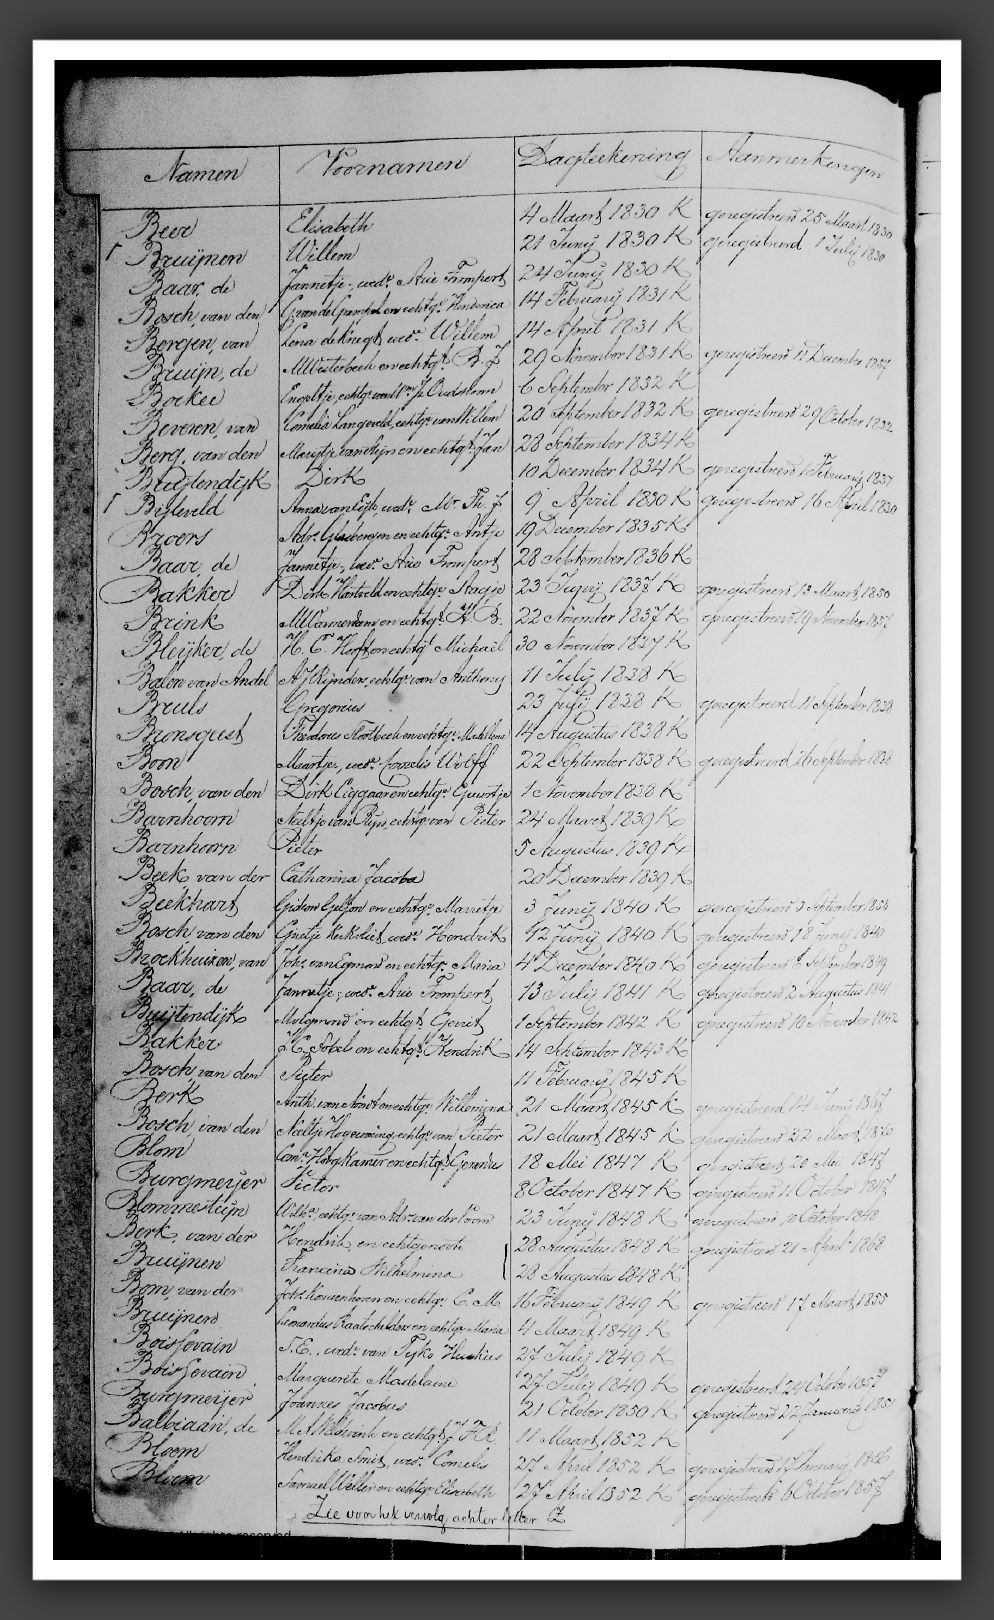 Namen Voornamen Dagteekening Aanmerkingen
Beer Elisabeth 4 Maart 1830 K geregistreerd 25 Maart 1830
Bruijnen Willem 21 Junij 1830 K geregistreerd 1 Julij 1830
Baar, de Jannetje, wede. Arie Trompert 24 Junij 1830 K
Bosch, van den en echtge. Henderica 14 Februarij 1831 K
Bergen, van Lena de Knegt, wede. Willem 14 April 1831 K
Bruijn, de M Westerbeek en echtge. B. J 29 November 1831 K geregistreerd 11 December
Bockee Engeltje, echtge. van 6 September 1832 K
Beveren, van Cornelia Langeveld, echtge. van Willem 20 September 1832 K geregistreerd 29 October 1832
Berg, van den Marijtje van Rijn en echtgt. Jan 28 September 1834 K
Buijtendijk Dirk 10 December 1834 K geregistreerd 1 Februarij 1837
Bijleveld Anna van Eijk, wede. Mr. Th. J 9 April 1830 K geregistreerd 16 April 1830
Broers Adrs. en echtge. Antje 19 December 1835 K
Baar, de Jannetje, wede. Arie Trompert 28 September 1836 K
Bakker Dirk Hartveld en echtge. Aagje 23 Junij 1837 K geregistreerd 13 Maart 1850
Brink en echtgt. H. B. 22 November 1837 K geregistreerd November 1857
Bleijker, de H. C. en echtgt. Michael 30 November 1837 K
Balen van Andel A J Rijnders, echtge. van Anthonij 11 Julij 1838 K
Breuls Gregorius 23 Julij 1838 K geregistreerd 11 September 1838
Bronsgeest Theodorus Slootbeek en echtge. Mechelina 14 Augustus 1838 K
Boon Maartje, wede. Cornelis Wolff 22 September 1838 K geregistreerd 26 September 1838
Bosch, van den Dirk Eggaar en echtge. Geertje 1 November 1838 K
Barnhoorn Neeltje van Rijn, echtge. van Pieter 24 Maart 1839 K
Barnhoorn Pieter 5 Augustus 1839 K
Beek van der Catharina Jacoba 20 December 1839 K
Beekhart Gideon Geljon en echtge. Marretje 3 Junij 1840 K geregistreerd 3 September
Bosch van den Grietje Kerkvliet, wede. Hendrik 12 Junij 1840 K geregistreerd 18 Junij 1840
Brockhuizen, van Johs. van Egmond en echtge. Maria 4 December 1840 K geregistreerd 6 September 1849
Baar, de Jannetje, wede. Arie Trompert 13 Julij 1841 K geregistreerd 2 Augustus 1841
Buijtendijk Molgrund en echtgt. Gerrit 1 September 1842 K geregistreerd 10 November 1842
Bakker J. C. Sobels en echtgt. Hendrik 14 September 1843 K
Bosch van den Pieter 11 Februarij 1845 K
Berk Anth. van Noort en echtge. Willemina 21 Maart 1845 K geregistreerd 14 Junij 1867
Bosch van den Neeltje Hogewoning, echtge. van Pieter 21 Maart 1845 K geregistreerd 22 Maart
Blom Corna. Hoogkamer en echtgt. Gerardus 18 Mei 1847 K geregistreerd 20 Mei 1847
Burgmeijer Pieter 8 October 1847 K geregistreerd 11 October 1847
Blommesteijn Wilha. echtge. van Adr. van der Voorn 23 Junij 1848 K geregistreerd 10 October 1848
Berk, van der Hendrik en echtgenoote 28 Augustus 1848 K geregistreerd 21 April 1868
Bruijnen Francina Wilhelmina 28 Augustus 1848 K
Bom, van der Johs. Kouwenhoven en echtge. C. M. 16 Februarij 1849 K geregistreerd 17 Maart 1855
Bruijnen Leonardus Raatschelders en echtge. Maria 4 Maart 1849 K
Boissevain S. E., wede. van Tijko 27 Julij 1849 K
Boissevain Marguerite Madelaine 27 Julij 1849 K geregistreerd 24 October 1857
Burgmeijer Joannes Jacobus 21 October 1850 K geregistreerd 22 Januarij 1851
Balbiaan, de en echtgt. 11 Maart 1852 K
Bloem Hendrika Smit, wede. Cornelis 27 April 1852 K geregistreerd Februarij
Bloem Samuel Weller en echtge. Elizabeth 27 April 1852 K geregistreerd 6 October 1857
Zie voor het vervolg achter letter Z
All rights reserved